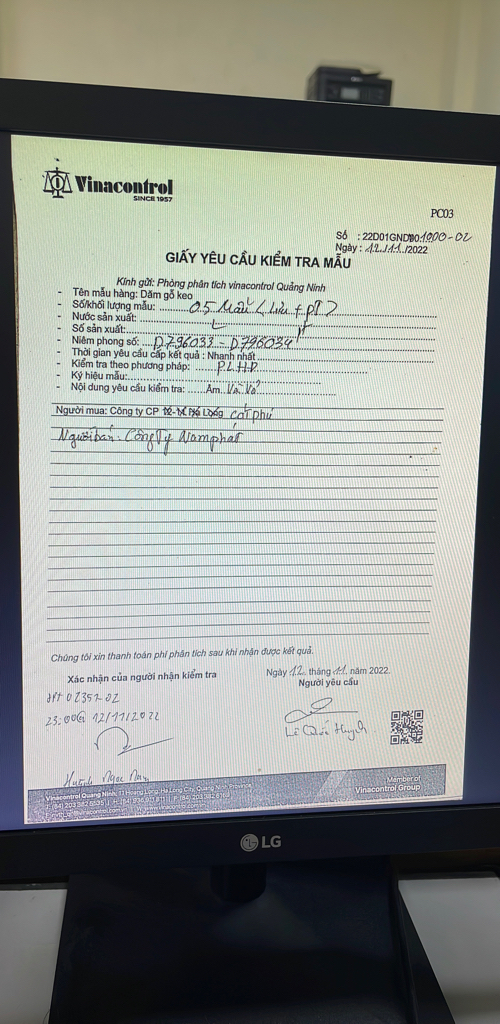 Vinacontrol
SINCE 1957
PC03
Số : 22D01GND 1000-02
Ngày : 12/11/2022
GIẤY YÊU CẦU KIỂM TRA MẪU
Kính gửi: Phòng phân tích vinacontrol Quảng Ninh
- Tên mẫu hàng: Dăm gỗ keo
- Số/khối lượng mẫu: 05 Mẫu (Lưu + PT)
- Nước sản xuất:
- Số sản xuất: PT
- Niêm phong số: D796033 - D796034
- Thời gian yêu cầu cấp kết quả : Nhanh nhất
- Kiểm tra theo phương pháp: PLHD
- Ký hiệu mẫu:
- Nội dung yêu cầu kiểm tra: Ẩm. Và Vỏ
Người mua: Công ty CP cát phú
Người bán: Công Ty Namphát
Chúng tôi xin thanh toán phí phân tích sau khi nhận được kết quả.
Xác nhận của người nhận kiểm tra
Ngày 12 tháng 11 năm 2022.
Người yêu cầu
02352-02
23:00 12/11/2022
Lê Quốc Huynh
Huỳnh Ngọc Nam
Vinacontrol Quang Ninh: 11 Hoang Long, Ha Long City, Quang Ninh Province
Member of
Vinacontrol Group
LG